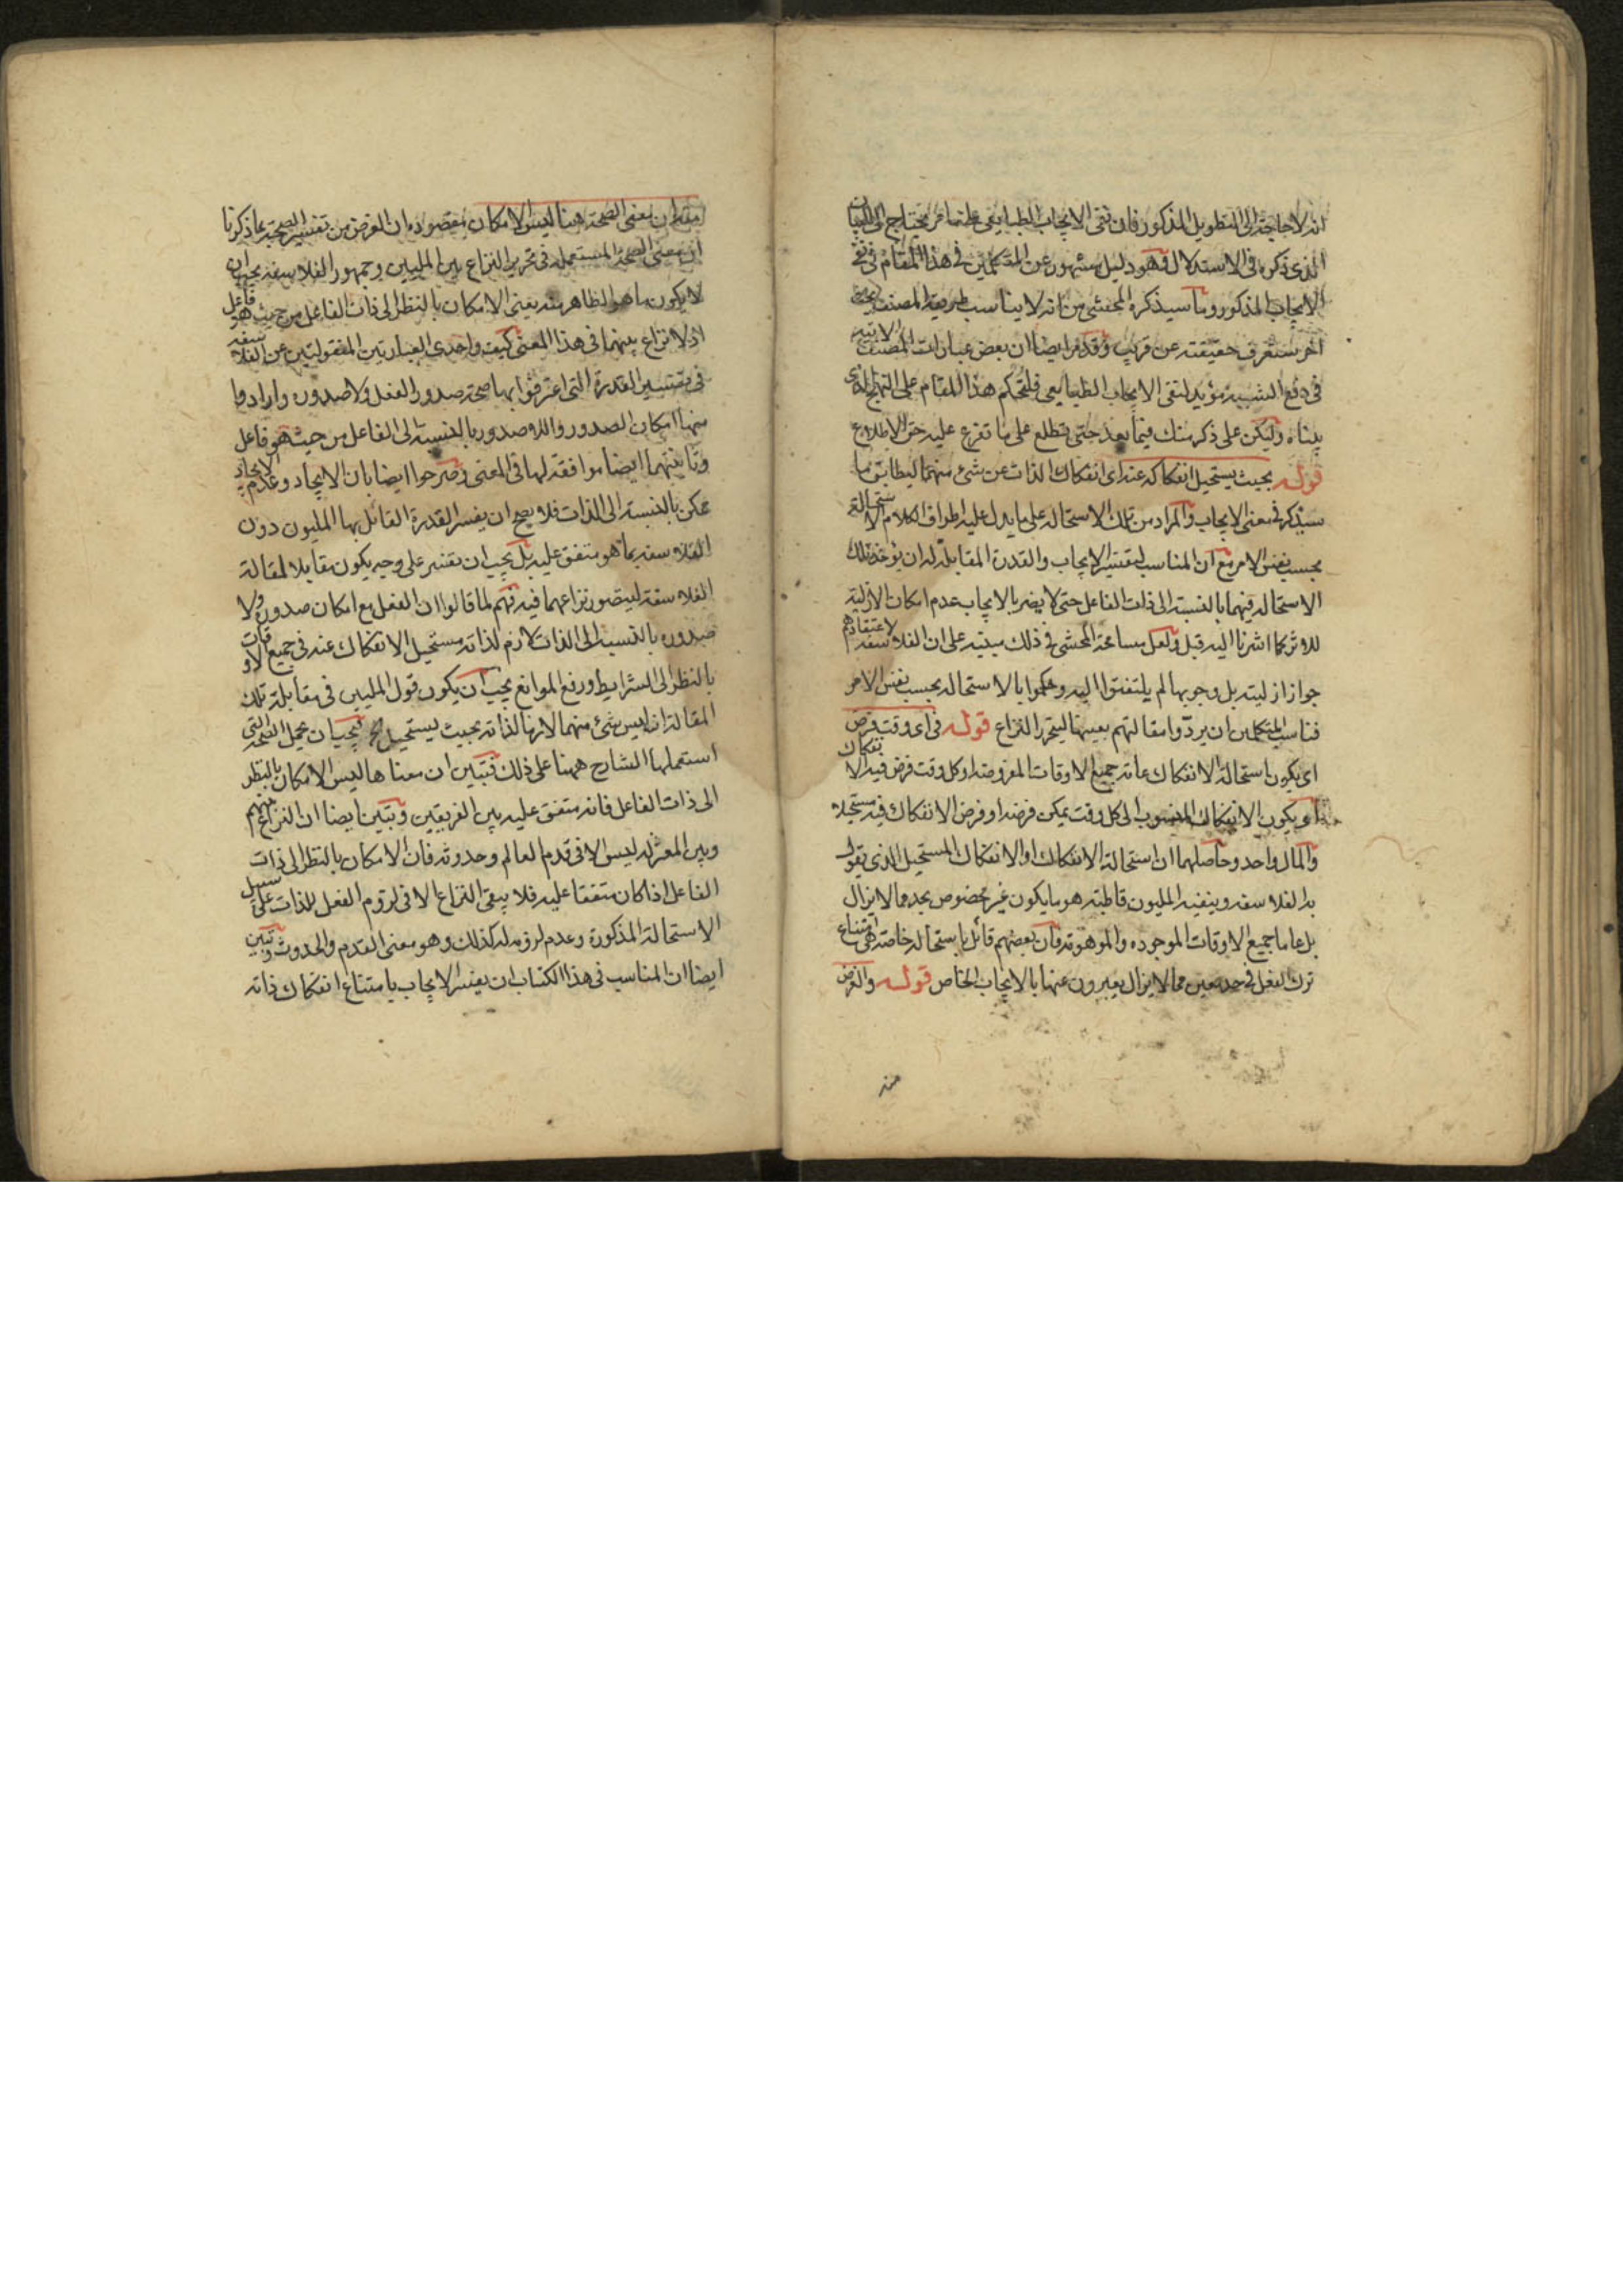 انه لا حاجة الى التطويل المذكور فان نفى الايجاب الطباييعى ايضا مما يحتاج الى البيان
الذى ذكره فى الاستدلال فهو دليل مشهور عن المتكلمين فى هذا المقام فى نفى
الايجاب المذكور وما سيذكره المحشى من انه لا يناسب طريقة المصنف
اخر ستعرف حقيقته عن قريب وقد مر ايضا ان بعض عبارات المصنف الاتية
فى دفع الشبهة مؤيد لنفى الايجاب الطبايعى فليحكم هذا المقام على النهج الذى
بيناه وليكن على ذكر منك فيما بعد حتى تطلع على ما تفرع عليه حق الاطلاع
قوله بحيث يستحيل انفكاكه عنه اى انفكاك الذات عن شئ منهما ليطابق ما
سيذكره فى معنى الايجاب والمراد من تلك الاستحالة على ما يدل عليه اطراف الكلام الاستحالة
بحسب نفس الامر مع ان المناسب لتفسير الايجاب والقدرة المقابلة له ان يؤخذ تلك
الاستحالة فيهما بالنسبة الى ذات الفاعل حتى لا يضر بالايجاب عدم امكان الازلية
للاثر كما اشرنا اليه قبل ولعل مسامحة المحشى فى ذلك مبنية على ان الفلاسفة لاعتقادهم
جواز ازليته بل وجوبها لم يلتفتوا اليه وحكموا بالاستحالة بحسب نفس الامر
فناسب للمتكلمين ان يردوا مقالتهم بعينها ليتحرر النزاع قوله فى اى وقت فرض
اى يكون استحالة الانفكاك عامة جميع الاوقات المفروضة او كل وقت فرض فيه الانفكاك
او يكون الانفكاك المنسوب الى كل وقت يمكن فرضه او فرض الانفكاك فيه مستحيلا
والمال واحد وحاصلهما ان استحالة الانفكاك او الانفكاك المستحيل الذى يقول
به الفلاسفة وينفيه المليون قاطبة هو ما يكون غير مخصوص بحد مما لا يزال
بل عاما جميع الاوقات الموجودة والموهومة فان بعضهم قائل باستحالة خاصة هى امتناع
ترك الفعل فى حد معين مما لا يزال يعبرون عنها بالايجاب الخاص قوله والغرض
منه
منه ان معنى الصحة هنا ليس الامكان مقصوده ان الغرض من تفسير الصحة بما ذكرنا
ان معنى الصحة المستعمل فى تحرير النزاع بين المليين وجمهور الفلاسفة يجب ان
لا يكون ما هو الظاهر منه يعنى الامكان بالنظر الى ذات الفاعل من حيث هو فاعل
اذ لا نزاع بينهما فى هذا المعنى كيف واحدى العبارتين المنقولتين عن الفلاسفة
فى تفسير القدرة التى اعترفوا بها صحة صدور الفعل ولا صدوره وارادوا
منها امكان الصدور واللاصدور بالنسبة الى الفاعل من حيث هو فاعل
وثانيتهما ايضا موافقة لها فى المعنى وصرحوا ايضا بان الايجاد وعدم الايجاد
ممكن بالنسبة الى الذات فلا يصح ان يفسر القدرة القائل بها المليون دون
الفلاسفة بما هو متفق عليه بل يجب ان تفسر على وجه يكون مقابلا لمقالة
الفلاسفة ليتصور نزاعهما فيه فهم لما قالوا ان الفعل مع امكان صدوره ولا
صدوره بالنسبة الى الذات لازم لذاته مستحيل الانفكاك عنه فى جميع الاوقات
بالنظر الى الشرايط ورفع الموانع يجب ان يكون قول المليين فى مقابلة تلك
المقالة انه ليس شئ منهما لازما لذاته بحيث يستحيل الخ فيجب ان يحمل الصحة التى
استعملها الشارح ههنا على ذلك فتبين ان معناها ليس الامكان بالنظر
الى ذات الفاعل فانه متفق عليه بين الفريقين وتبين ايضا ان النزاع بينهم
وبين المعتزلة ليس الا فى قدم العالم وحدوثه فان الامكان بالنظر الى ذات
الفاعل اذا كان متفقا عليه فلا يبقى النزاع الا فى لزوم الفعل للذات على سبيل
الاستحالة المذكورة وعدم لزومه له كذلك وهو معنى القدم والحدوث وتبين
ايضا ان المناسب فى هذا الكتاب ان يفسر الايجاب بامتناع انفكاك ذاته